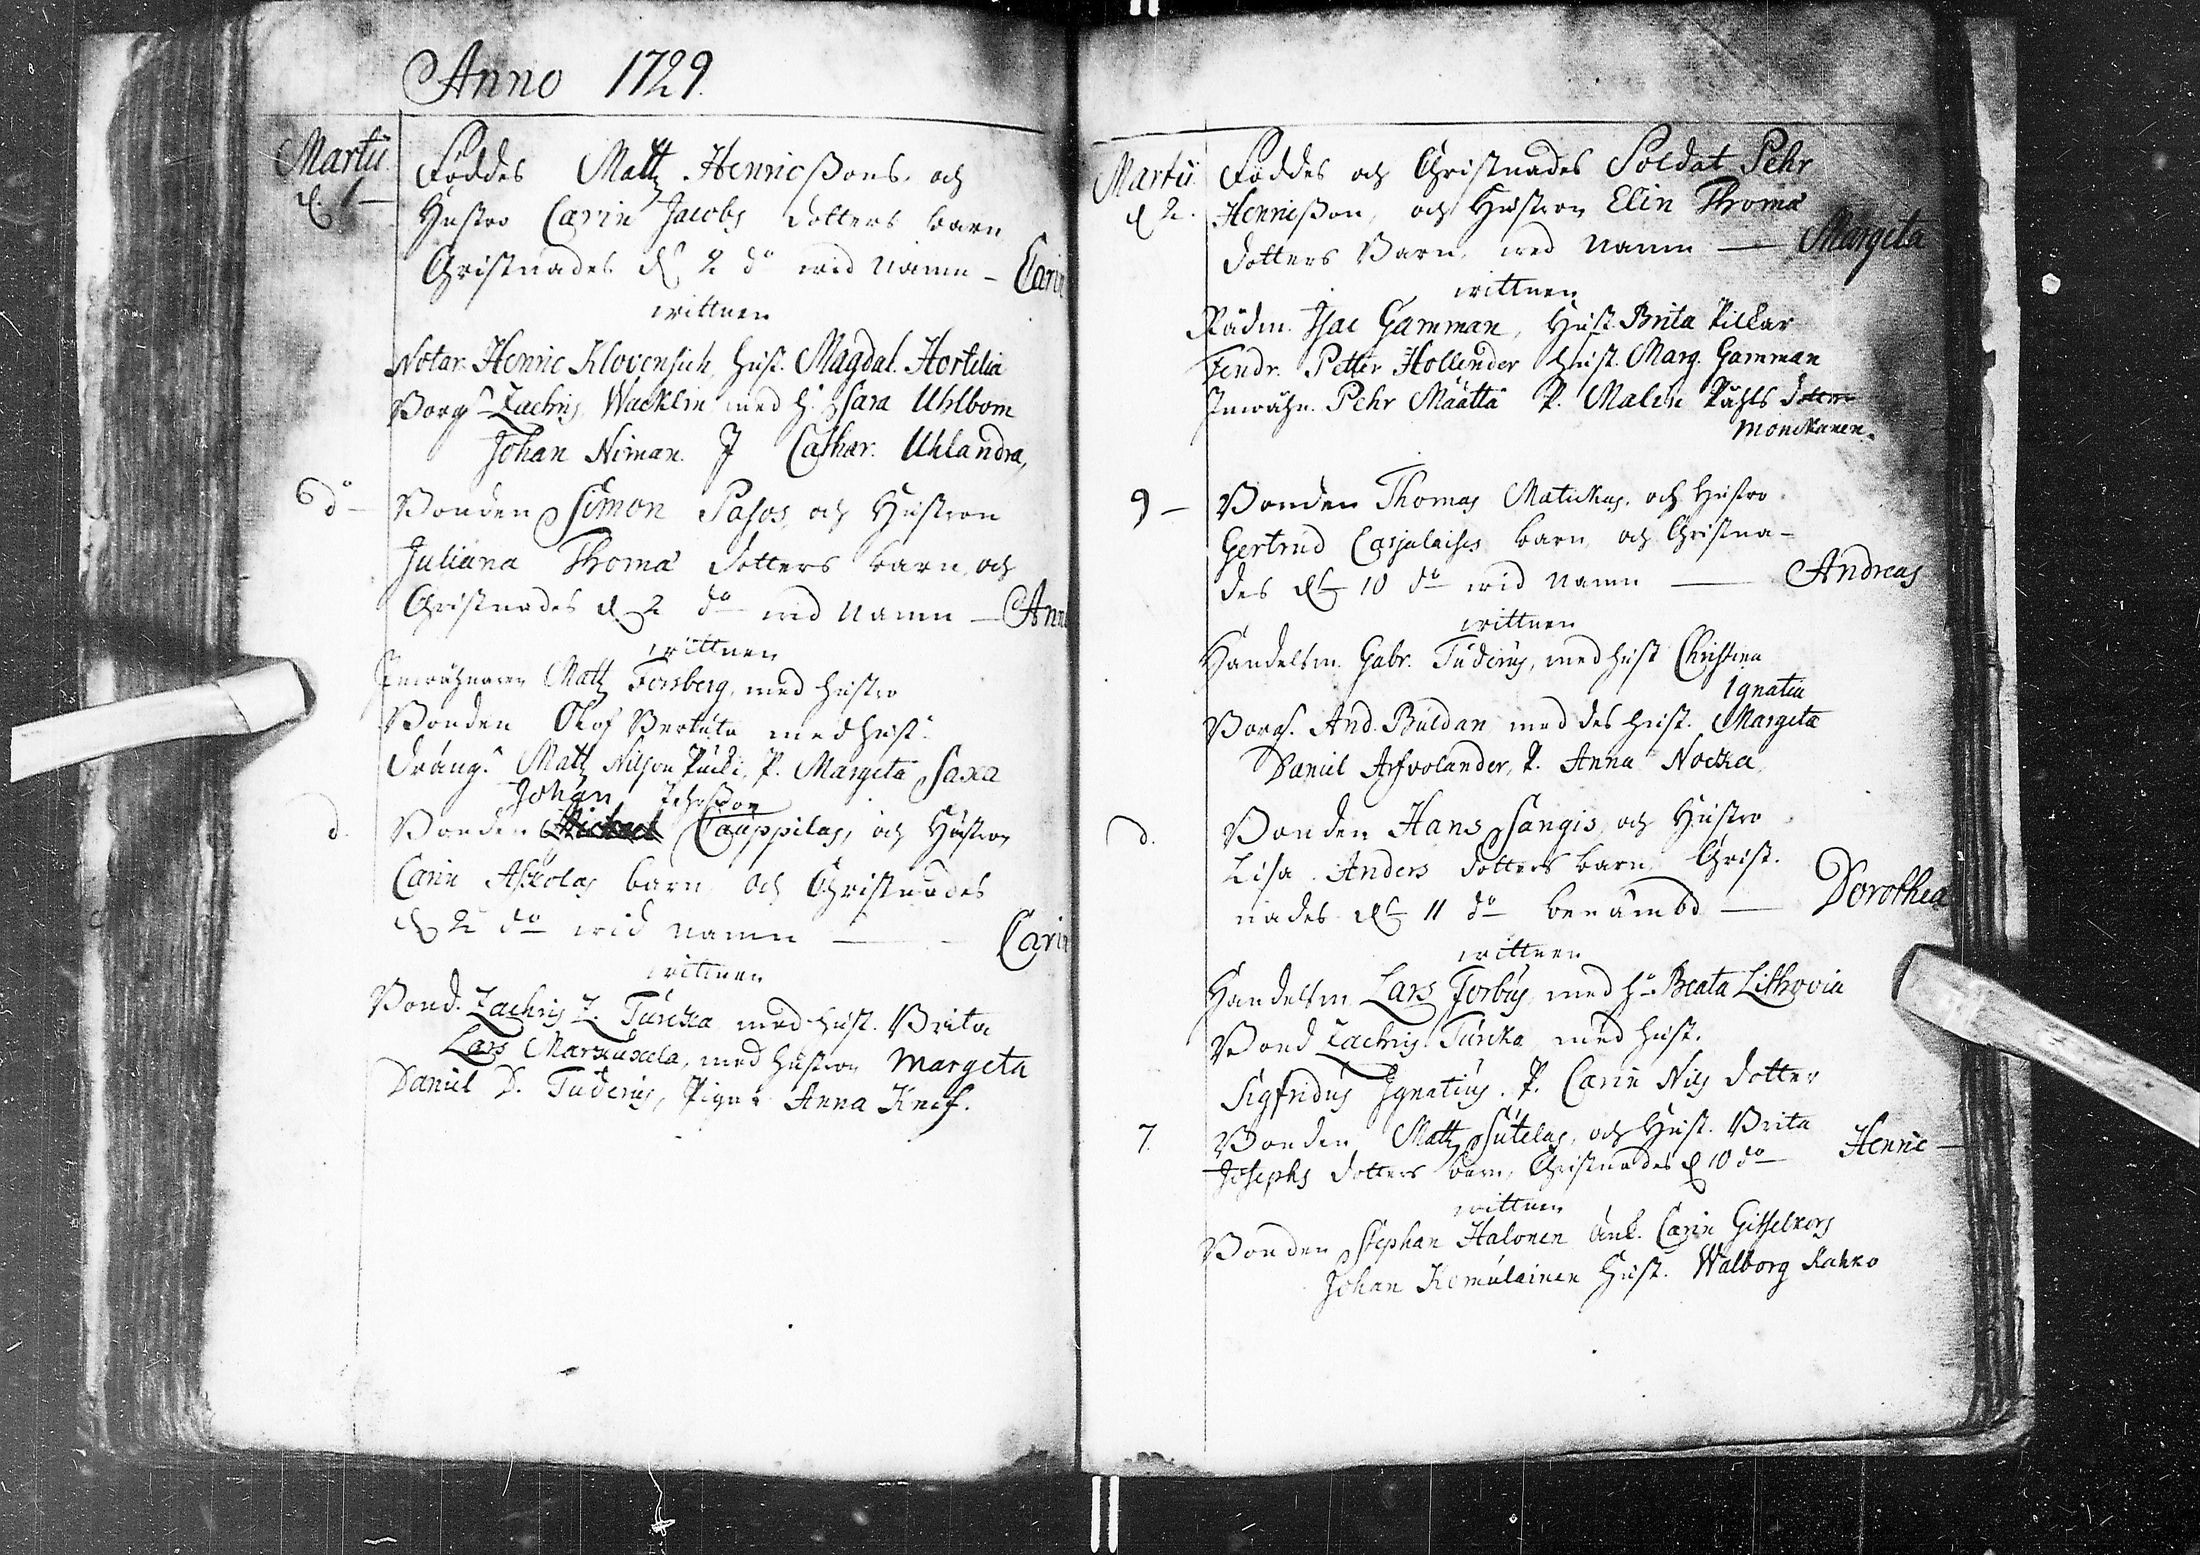 Anno 1729.
Martii
d. 1 —
Föddes Matz Henricßons och
Hustro Carin Jacobs dotters barn
Christnades d. 2 do wid namn — Carin
wittnen
Notar. Henric Klovensich, hust. Magdal. Hortelia
Borg. Zachris Wacklin med h. Sara Uhlbom
Johan Niman. J Cathar. Uhlandra,
6 d —
Bonden Simon Pasos, och Hustron
Juliana Thomæ dotters barn, och
Christnades d 2 do wid namn — Anna
wittnen
Inwåhnaren Matz Forsberg, med hustro
Bonden Olof Bertula med hust.
dräng. Matz Nilson P. Margeta Saxa
Johan
d.
Bonden Cauppilas, och Hustron
Carin Askolas barn och Christnades
d 2 do wid namn — Carin
wittnen
Bond. Zachris Z. Turcka med hust. Brita
Lars Marxuxela, med hustron Margeta
Daniel D. Tuderus, Pigan Anna Knef.
Martii
d 2.
Föddes och Christnades Soldat Pehr
Henricßon, och Hustron Elin Thomæ
dotters Barn, med namn — Margeta
wittnen
Rådm. Isac Gamman, Hust. Brita Pillar
Fendr. Petter Hollender hust. Marg. Gamman
Inwåhn. Pehr Määttä P. Malin Påhls dotter
Monckanen.
9 —
Bonden Thomas Matukas, och Hustro
Gertrud Carjalaises barn, och Christna-
des d 10 do wid namn — Andreas
wittnen
Handelsm. Gabr. Tuderus, med hust Christina
Ignatia
Borg. And. Buldan med des hust. Margeta
Daniel Arfvolander, P. Anna Nocka
d.
Bonden Hans Sangis, och Hustro
Lisa Anders dotters barn Christ.
nades d 11 do benämbd — Dorothea
wittnen
Handelsm Lars Forbus med h. Beata Lithovia
Bond Zachris Turcka med hust.
Sigfridus Ignatius. P. Carin Nils dotter
7.
Bonden Matz Sutelas, och Hust. Brita
Josephs dotters barn, Christnades d 10 do Henric —
wittnen
Bonden Stephan Halonen änk. Carin Gisselkors
Johan Kemulainen hust. Walborg Kahko